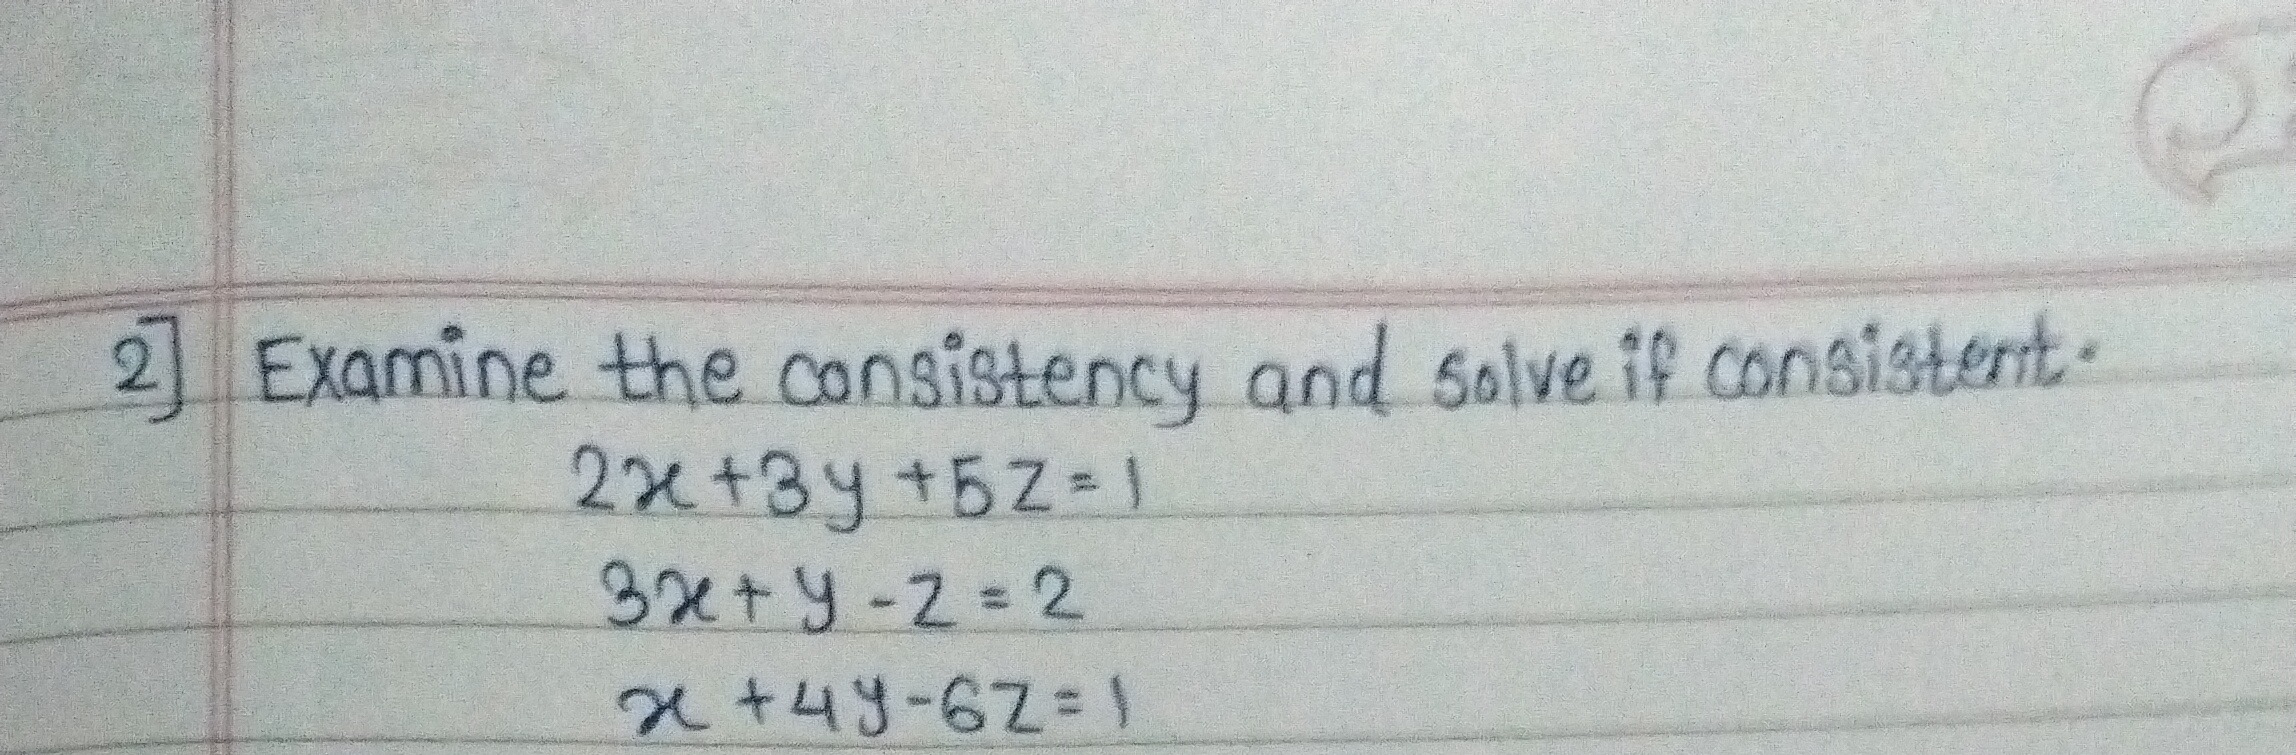 2] Examine the consistency and solve if consistent.
2x+3y+5z=1
3x+y-z=2
x+4y-6z=1